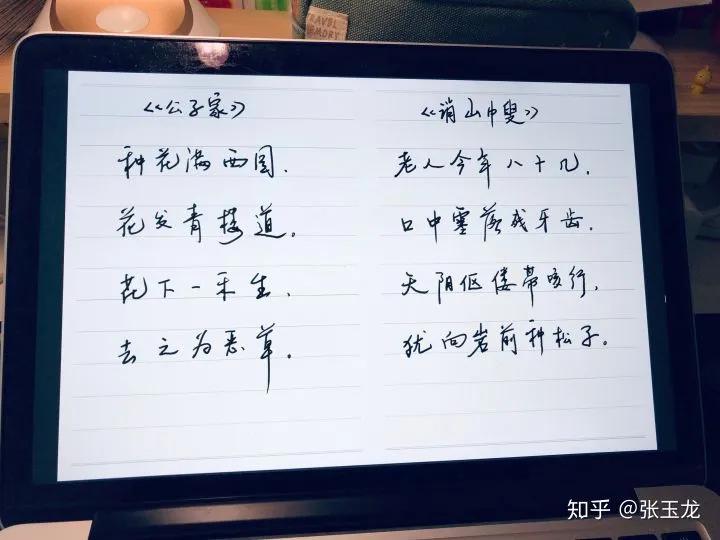 TRAVEL
MEMORY
《公子家》
种花满西园.
花发青楼道。
花下一禾生.
去之为恶草。
《诮山中叟》
老人今年八十几.
口中零落残牙齿.
天阴伛偻带咳行.
犹向岩前种松子。
知乎 @张玉龙